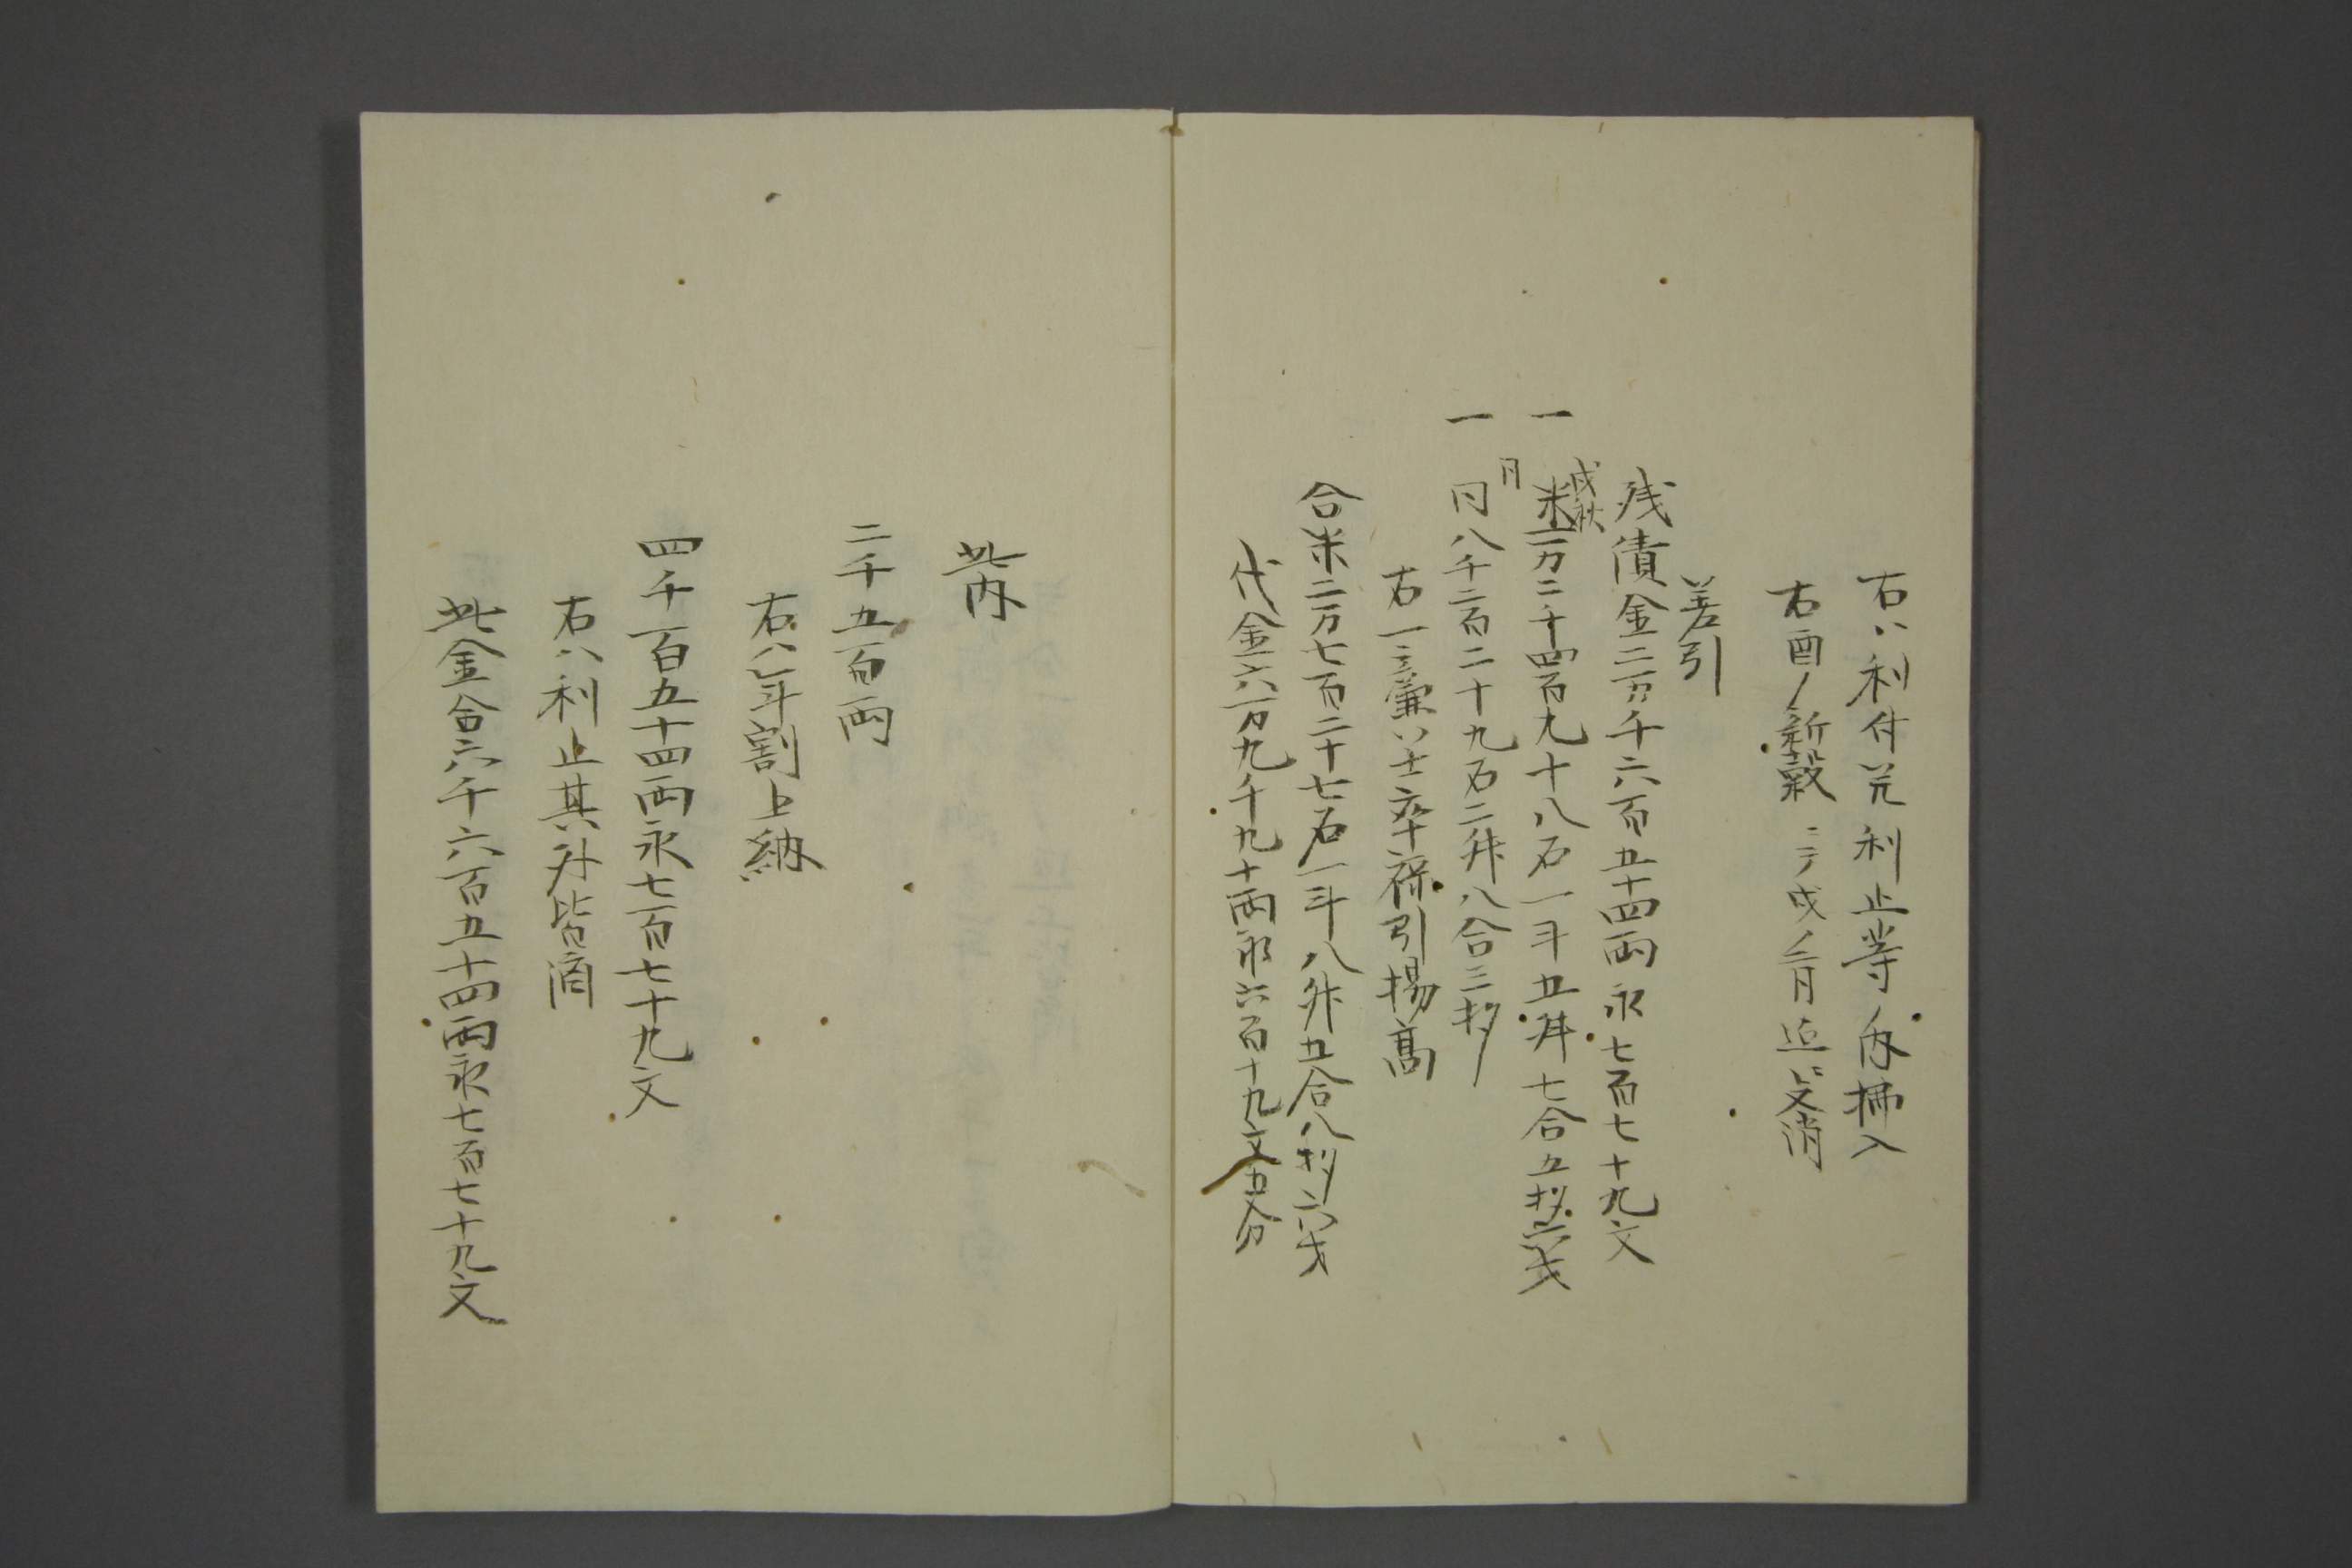 右ハ利付并利止等ノ内拂入
右酉ノ新穀ニテ戌ノ三月迄ニ
差引
残債金二万千六百五十四両永七百七十九文
一 戌秋米一万二千四百九十八石一斗五升七合五勺六才
一 同同八千二百二十九石二升八合三勺
右二廉ハ士卒禄引揚高
合米二万七百二十七石一斗八升五合八勺六才
代金六万九千九十両永六百十九文五分
此内
二千五百両
右ハ年割上納
四千百五十四両永七百七十九文
右ハ利止其外皆済
此金合六千六百五十四両永七百七十九文